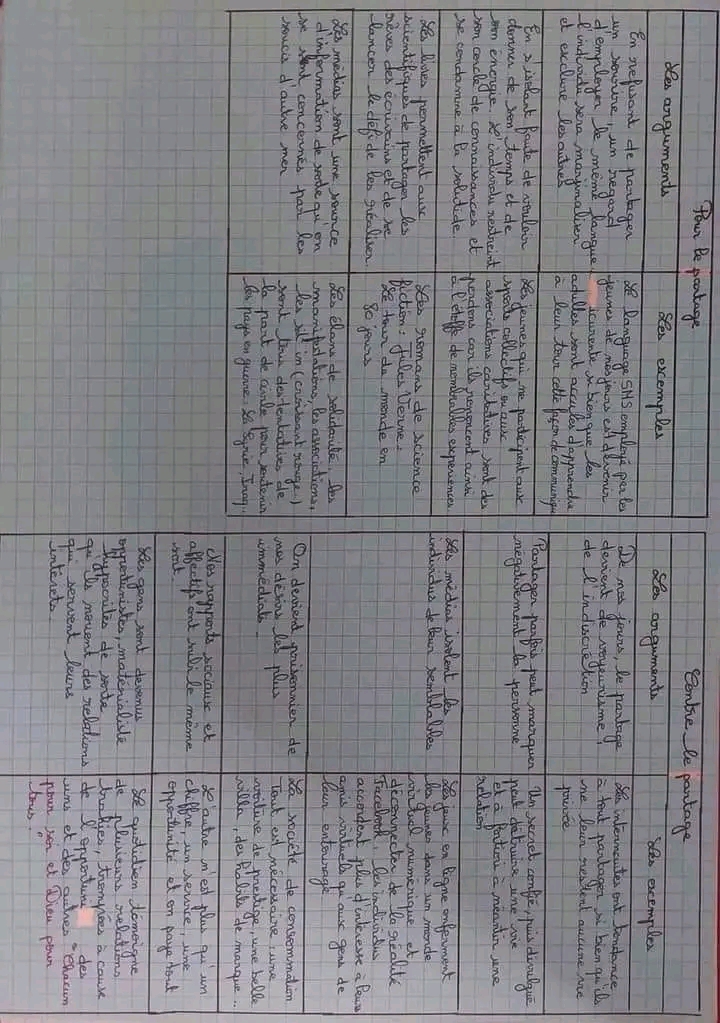 Pour le partage
Les arguments
Les exemples
En refusant de partager
un sourire, un regard
d'employer le même langue,
l'individu sera marginaliser
et exclure les autres
Le language SMS employé par les
jeunes de nos jours est devenu
si bien que les
adultes sont acculés d'apprendre
à leur tour cette façon de communiquer
En s'isolant faute de vouloir
donner de son temps et de
son énergie l'individu restreint
son cercle de connaissances et
se condamne à la solitude.
Les jeunes qui ne participent aux
sports collectifs ou aux
associations caritatives sont des
perdons car ils renoncent ainsi
à l'étoffe de nombreuses expériences
Les livres permettent aux
scientifiques de partager les
rêves des écrivains et de se
lancer le défi de les réaliser.
Les romans de science
fiction : Jules Verne :
Le tour du monde en
80 jours
Les médias sont une source
d'information de sorte qu'on
se sent concernés par les
soucis d'autre mer
Les élans de solidarité, les
manifestations, les associations,
les sit in (croissant rouge..)
sont tous des tentatives de
la part de civile pour soutenir
les pays en guerre : La Syrie, Iraq..
Contre le partage
Les arguments
Les exemples
De nos jours, le partage
devient de voyeurisme !
de l'indiscrétion
Les internautes ont tendance
à tout partager si bien qu'ils
ne leur restent aucune vie
privée
Partager parfois peut marquer
négativement la personne
Un secret confié, puis divulgué
peut détruire une vie
et à fortiori anéantir une
relation
Les médias isolent les
individus de leur semblables
Les jeux en ligne enferment
les jeunes dans un monde
virtuel numérique et
déconnecter de la réalité
Facebook : les individus
accordent plus d'intéresse à leurs
amis virtuels qu'aux gens de
leur entourage
On devient prisonnier de
nos désirs les plus
immédiats.
La société de consommation
Tout est nécessaire : une
voiture de prestige, une belle
villa, des habits de marque..
Nos rapports sociaux et
affectifs ont subi le même
sort.
L'autre n'est plus qu'un
chiffre, un service, une
opportunité et on paye tout
Les gens sont devenus
opportunistes, matérialité
hypocrites de sorte
qu'ils nouent des relations
qui servent leurs
intérêts.
Le quotidien témoigne
de plusieurs relations
trahies, trompées à cause
de l'opportuni des
uns et des autres "Chacun
pour soi et Dieu pour
tous."